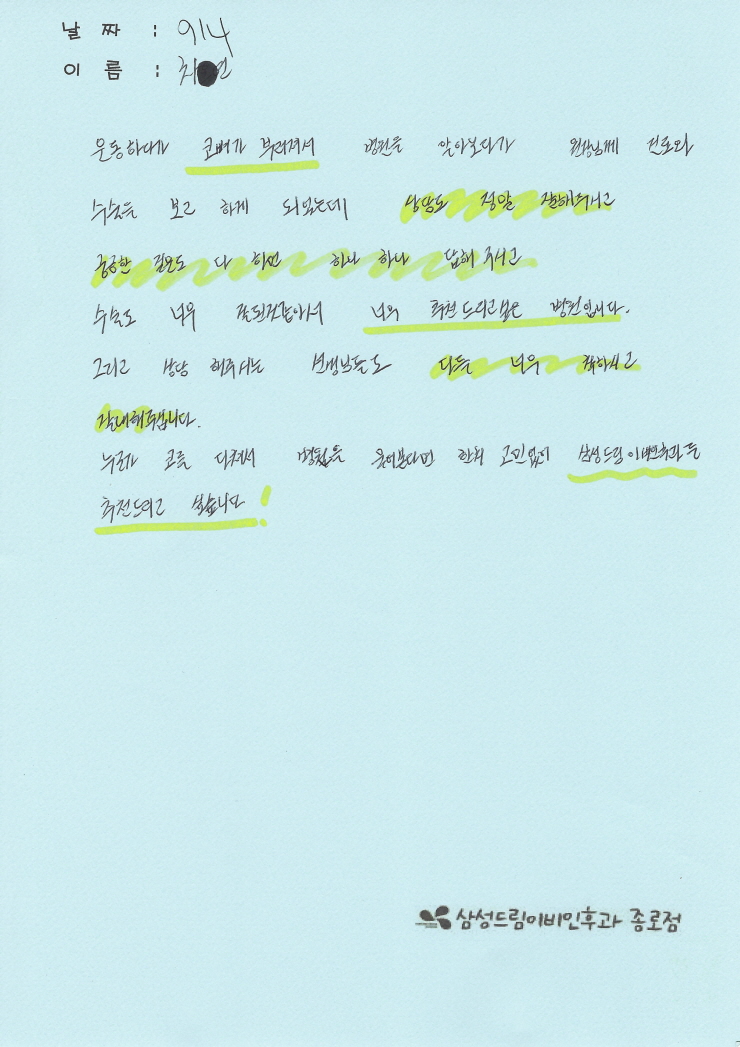 날 짜 : 9/4
이 름 : 최●연
운동하다가 코뼈가 부러져서 병원을 알아보다가 원장님께 진료와
수술을 보고 하게 되었는데 상담도 정말 잘해주시고
궁금한 질문도 다 하면 하나 하나 답해 주시고
수술도 너무 잘된것같아서 너무 추천드리고싶은 병원입니다.
그리고 상담 해주시는 선생님들도 다들 너무 착하시고
잘해주십니다.
누군가 코를 다쳐서 병원을 물어본다면 한치 고민없이 삼성드림이비인후과를
추천드리고 싶습니다!
삼성드림이비인후과 종로점